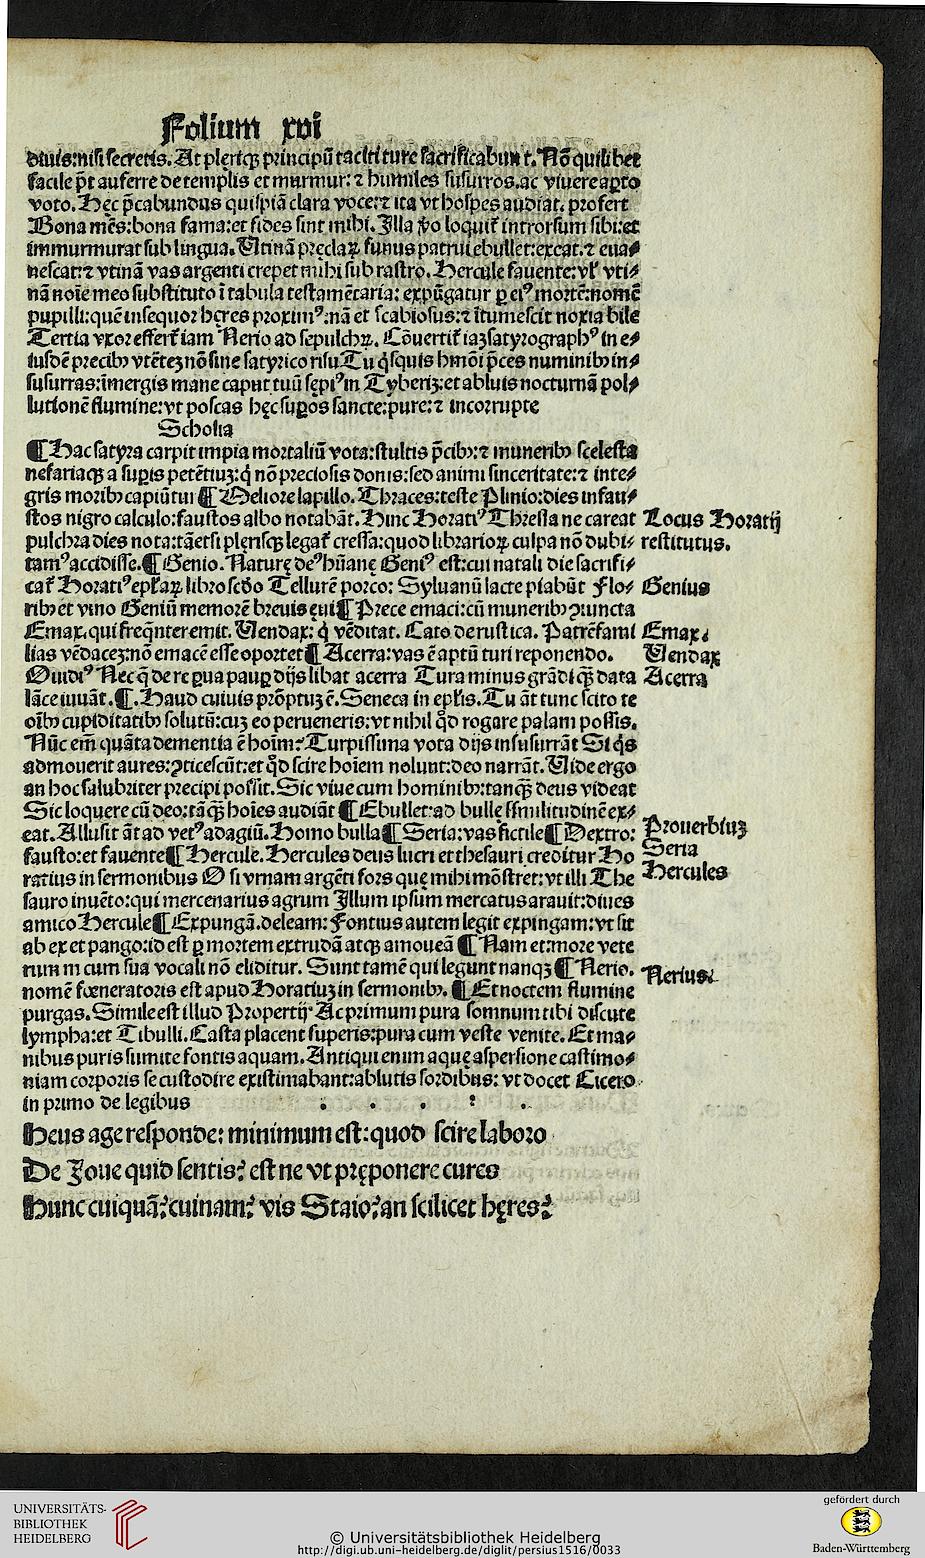 Folium xvi
diuis:nisi secretis. At pleriqꝫ principū taciti ture sacrificabunt. Nō quilibet
facile p̄t auferre de templis et murmur: ⁊ humiles susurros.ac viuere aꝑto
voto. Hęc p̄cabundus quispiā clara voce:⁊ ita vt hospes audiat. profert
Bona mēs:bona fama:et fides sint mihi. Illa ꝟo loquit̄ introrsum sibi:et
immurmurat sub lingua. Utinā pręclaꝝ funus patrui ebullet:exeat.⁊ eua⸗
nescat:⁊ vtinā vas argenti crepet mihi sub rastro. Hercule fauente:vl̓ vti⸗
nā noīe meo substituto ī tabula testamētaria: expūgatur ꝑ eiꝰ mortē:nomē
pupilli:quē insequor hęres proximꝰ:nā et scabiosus:⁊ ītumescit noxia bile
Tertia vxor effert̄ iam Nerio ad sepulchꝝ. Cōuertit̄ iaꝫ satyrographꝰ in e⸗
iusdē precibꝰ vtēteꝫ nō sine satyrico risu Tu q̇squis hmōi p̄ces numinibꝰ in⸗
susurras:īmergis mane caput tuū sępiꝰ in Tyberiꝫ:et abluis nocturnā pol⸗
lutionē flumine:vt poscas hęc suꝑos sancte:pure:⁊ incorrupte
Scholia
¶ Hac satyra carpit impia mortaliū vota:stultis p̄cibꝰ:⁊ muneribꝰ scelesta
nefariaqꝫ a suꝑis petētiuꝫ:q̇ nō preciosis donis:sed animi sinceritate:⁊ inte⸗
gris moribꝰ capiūtur ¶ Meliore lapillo. Thraces:teste Plinio:dies infau⸗
stos nigro calculo:faustos albo notabāt. Hinc Horatiꝰ Thressa ne careat
pulchra dies nota:tāetsi plerisqꝫ legat̄ cressa:quod librarioꝝ culpa nō dubi⸗
tamꝰ accidisse. ¶ Genio. Naturę deꝰ hūanę Geniꝰ est:cui natali die sacrifi⸗
cat̄ Horatiꝰ epl̄aꝝ libro scd̄o Tellurē porco: Syluanū lacte piabāt Flo⸗
ribꝰ et vino Geniū memorē breuis ęui ¶ Prece emaci:cū muneribꝰ ꝯiuncta
Emax.qui freq̄nter emit. Uendax: q̇ vēditat. Cato de rustica. Patrēfami
lias vēdaceꝫ:nō emacē esse oportet ¶ Acerra:vas ē aptū turi reponendo.
Ouidiꝰ Nec q̄ de re ꝑua pauꝑ dijs libat acerra Tura minus grādi q̄ꝫ data
lāce iuuāt. ¶. Haud cuiuis prōptuꝫ ē. Seneca in epl̄is. Tu āt tunc scito te
oībꝰ cupiditatibꝰ solutū:cuꝫ eo perueneris:vt nihil q̇d rogare palam possis.
Nūc em̄ quāta dementia ē hoīm? Turpissima vota dijs insusurrāt Si q̇s
admouerit aures:ꝯticescūt:et q̇d scire hoīem nolunt:deo narrāt. Uide ergo
an hoc salubriter precipi possit. Sic viue cum hominibꝰ:tanqꝫ deus videat
Sic loquere cū deo:tāq̄ꝫ hoīes audiāt ¶ Ebullet:ad bulle similitudinē ex⸗
eat. Allusit āt ad vetꝰ adagiū. Homo bulla ¶ Seria:vas fictile ¶ Dextro:
fausto:et fauente ¶ Hercule. Hercules deus lucri et thesauri creditur Ho
ratius in sermonibus O si vrnam argēti fors quę mihi mōstret:vt illi The
sauro inuēto:qui mercenarius agrum Illum ipsum mercatus arauit:diues
amico Hercule ¶ Expungā.deleam: Fontius autem legit expingam:vt sit
ab ex et pango:id est ꝑ mortem extrudā atqꝫ amoueā ¶ Nam et:more vete
rum m cum sua vocali nō eliditur. Sunt tamē qui legunt nanqꝫ ¶ Nerio.
nomē fœneratoris est apud Horatiuꝫ in sermonibꝰ. ¶ Et noctem flumine
purgas. Simile est illud Propertij Ac primum pura somnum tibi discute
lympha:et Tibulli. Casta placent superis:pura cum veste venite. Et ma⸗
nibus puris sumite fontis aquam. Antiqui enim aquę aspersione castimo⸗
niam corporis se custodire existimabant:ablutis sordibus: vt docet Cicero.
in primo de legibus
Heus age responde: minimum est:quod scire laboro
De Ioue quid sentis? est ne vt pręponere cures
Hunc cuiquā?cuinam? vis Staio?an scilicet hęres?
Locus Horatij
restitutus.
Genius
Emax.
Uendax
Acerra
Prouerbiuꝫ
Seria
Hercules
Nerius.
UNIVERSITÄTS-
BIBLIOTHEK
HEIDELBERG
© Universitätsbibliothek Heidelberg
http://digi.ub.uni-heidelberg.de/diglit/persius1516/0033
gefördert durch
Baden-Württemberg